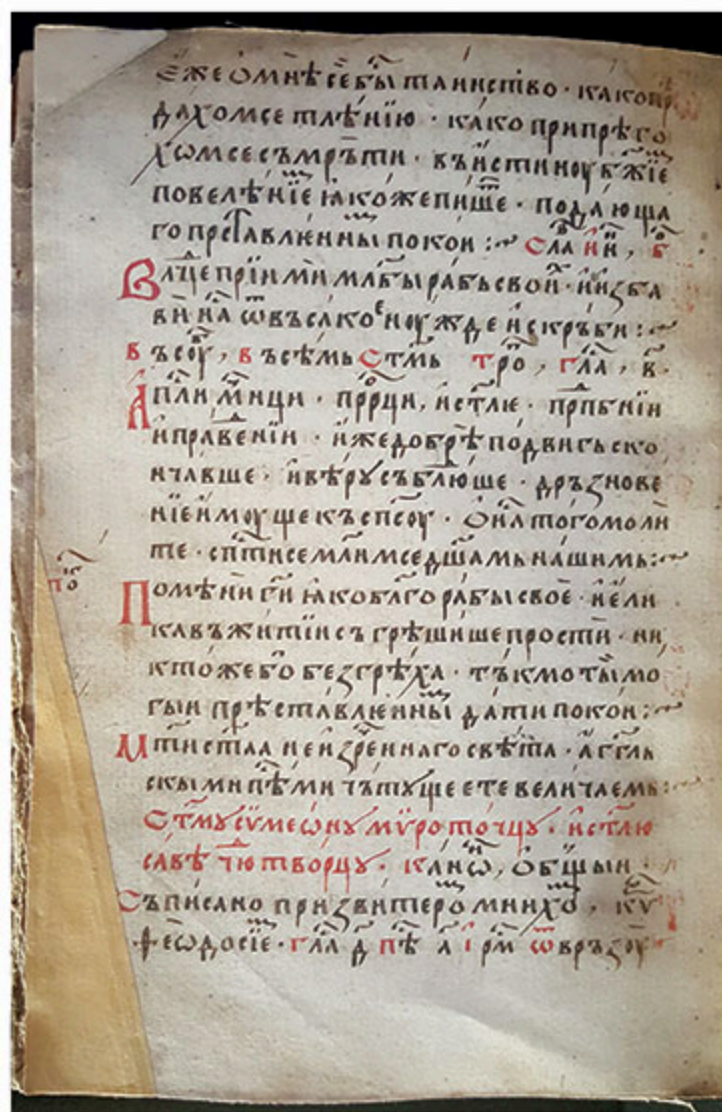 Еже ѡ мнѣ се бы таинство · како пр
дахомсе тлѣнїю · како припрѣго
хѡмсе съмрьти · въ истиноу бж҃їе
повелѣнїе ꙗкоже пише · подающа
го прѣставлѥнны покои :~ Сла и нн҃, б
Влⷣце прїими млбы рабь свои · и изба
ви на ѿ въсакоѥ ноужде и скрьби :~
в ъсоу, въсѣмь стм҃ь тро, гла, в҃ ·
Апⷭ҇ли мч҃ци · прⷪ҇рци, и ст҃лїе · прⷣпбнїи
и правенїи · иже добрѣ подвигь ско
нчавше · и вѣру съблюше · дрьзнове
нїе имоуще къ сп҃соу · О на того моли
те · сп҃стисе млимсе дш҃амь нашимь :~
по
Помѣни гⷭ҇и ꙗко бл҃го рабы своѥ · и ели
ка въ житїи съгрѣшише прости · ни
ктоже бо без грѣха · тъкмо ты мо
гыи прѣставлѥнны дати покои :~
Мт҃и ст҃аа неизреннаго свѣта · агг҃ль
скыми пѣⷭ҇ми чътуще ѥ те величаемь :~
Ст҃му сѵмеѡну мѵроточцу · и ст҃лю
савѣ чю҃творцу · канѡ, общыи ·
Съписано при звитеро мнихо, кѵ
ѳеѡдосїе · гла д҃ пѣ а҃ ірм ѿврьзоу